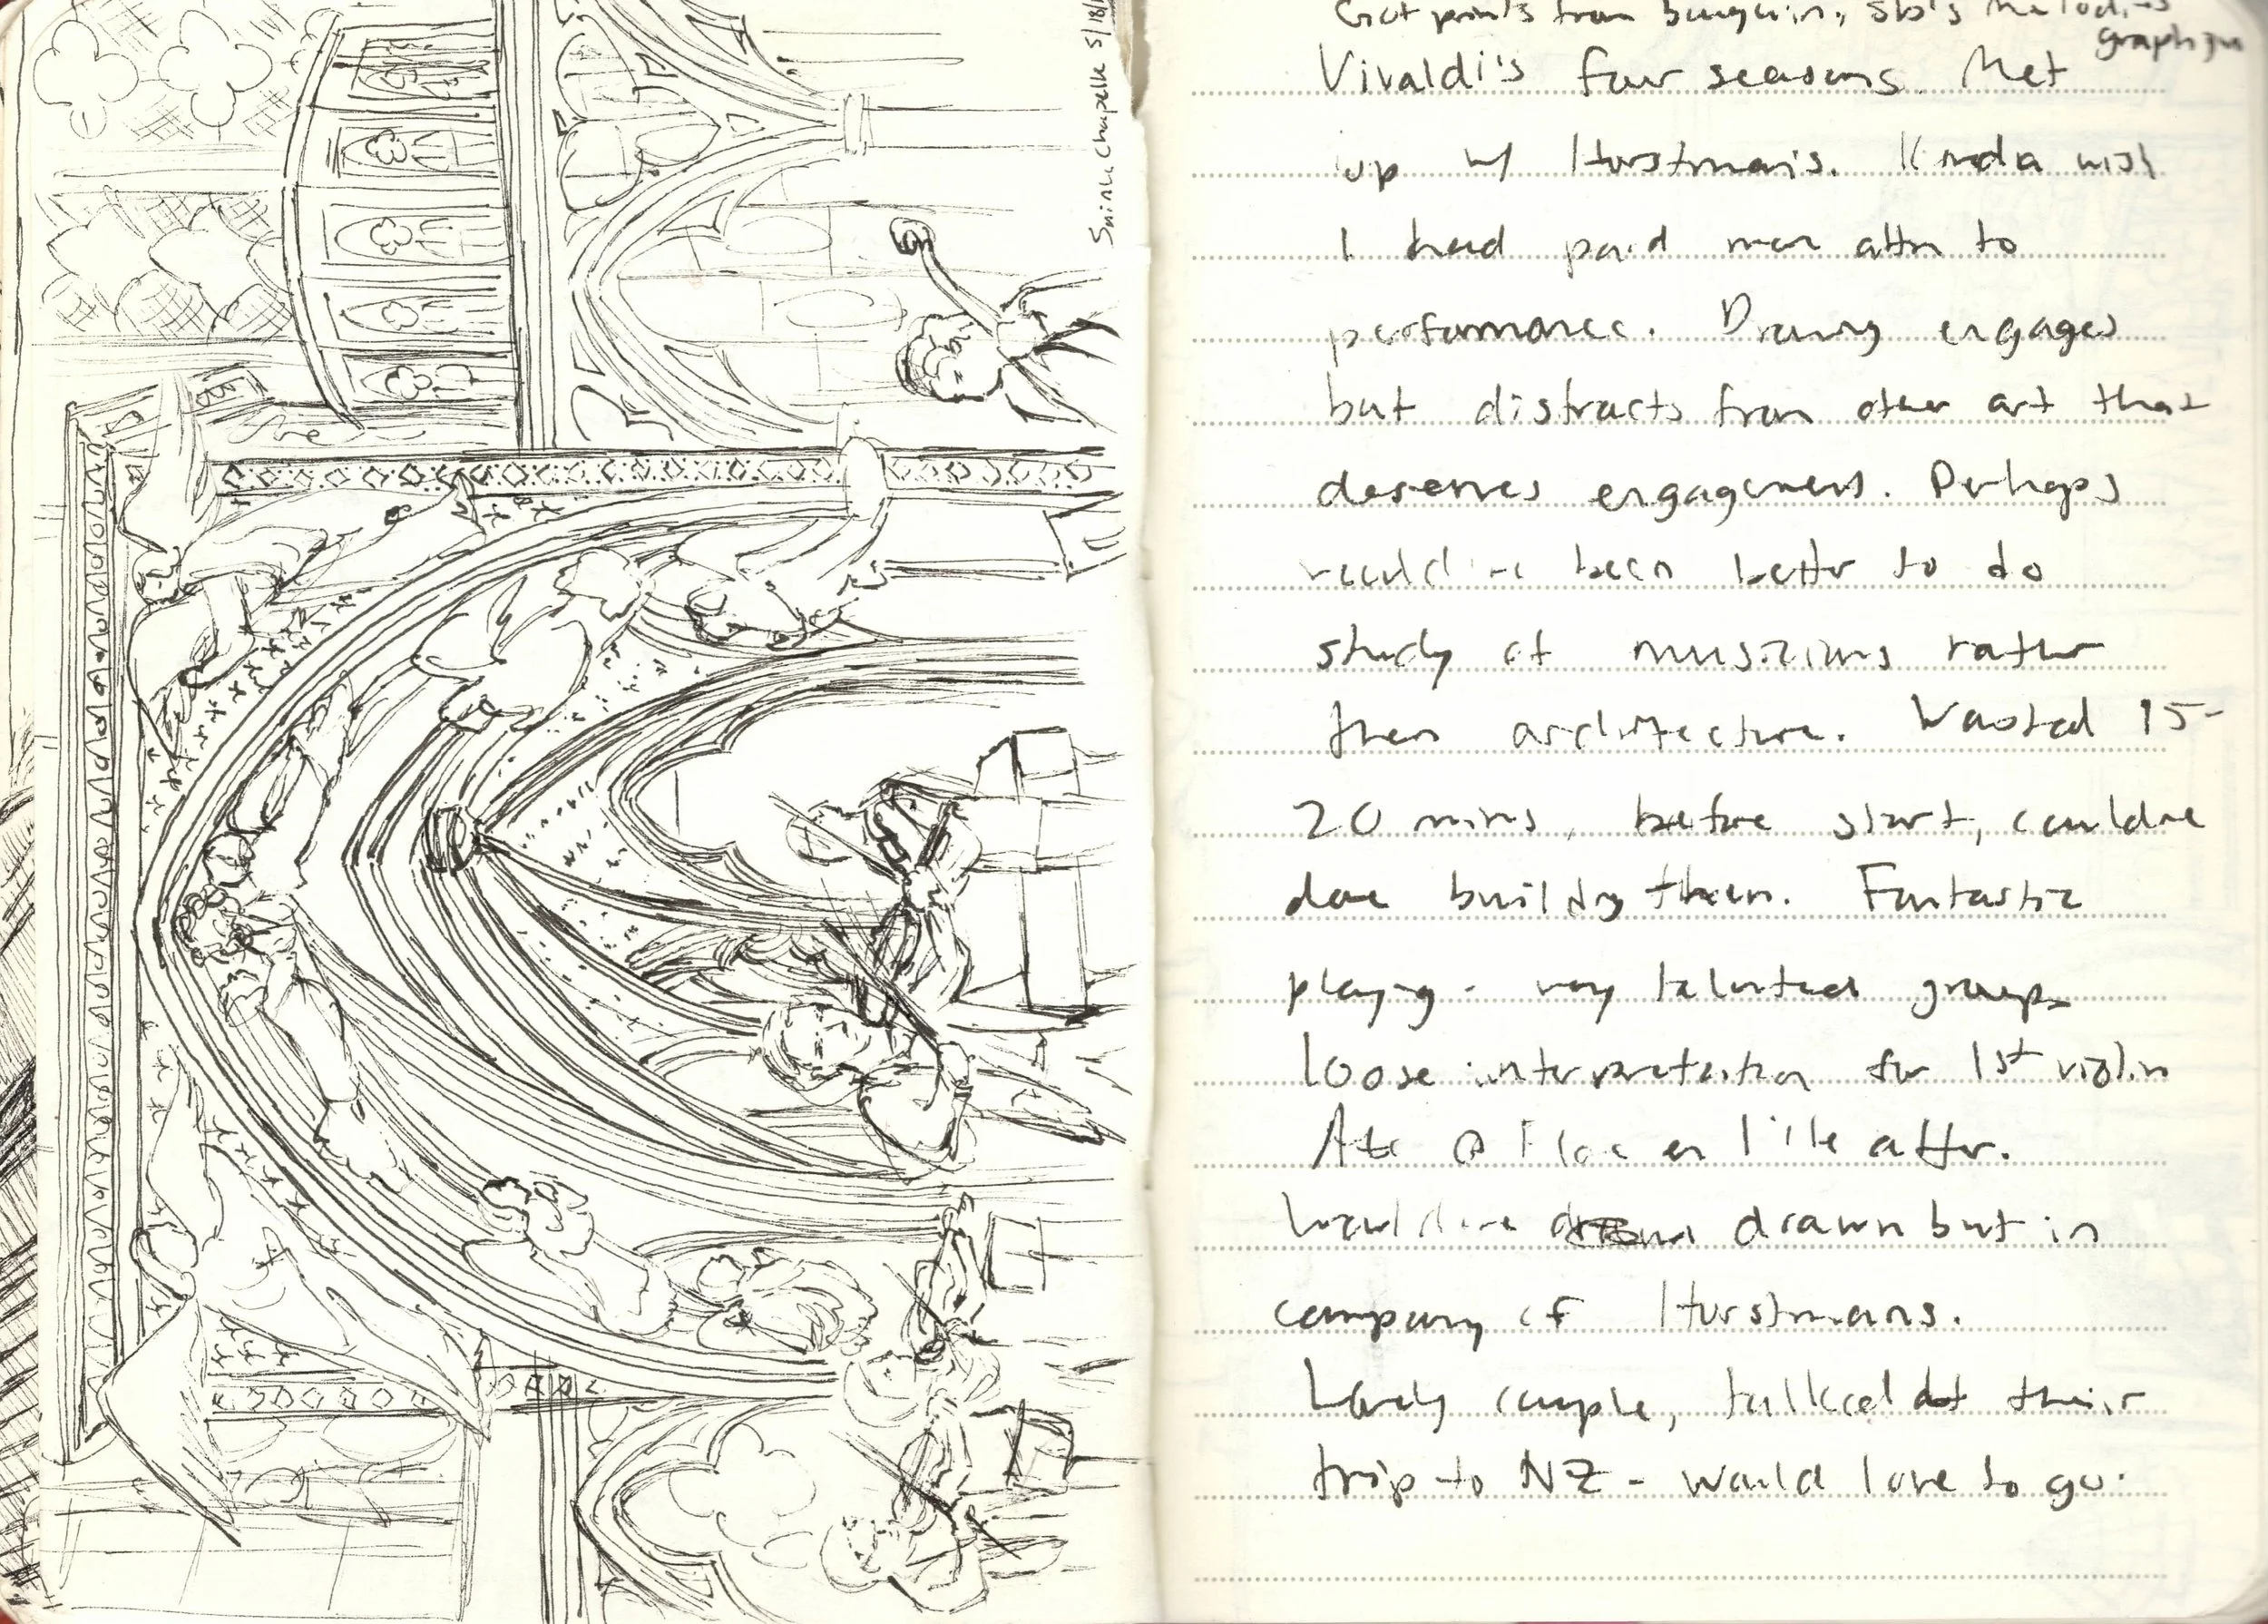 Sainte Chapelle 5/18/
Got prints from bouquin, sb's Melodies
graphiques
Vivaldi's four seasons. Met
up w/ Horstmans. Kinda wish
I had paid more attn to
performance. Drawing engages
but distracts from other art that
deserves engagement. Perhaps
would've been better to do
study of musicians rather
than architecture. Wasted 15-
20 mins. before start, could've
done building then. Fantastic
playing - very talented group
loose interpretation for 1st violin
Ate @ Flore en l'ile after.
Would've drawn but in
company of Horstmans.
Lovely couple, talked abt their
trip to NZ - would love to go.